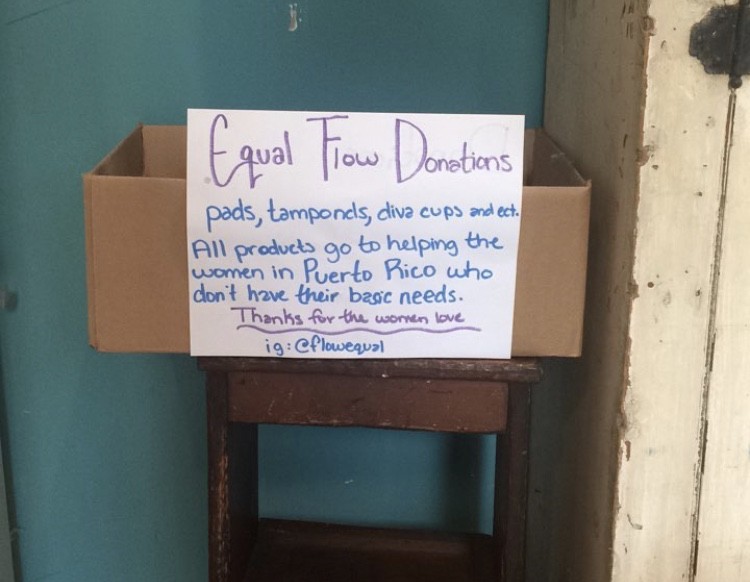 Equal Flow Donations
pads, tamponds, diva cups and ect.
All products go to helping the
women in Puerto Rico who
don't have their basic needs.
Thanks for the women love
ig: @flowequal